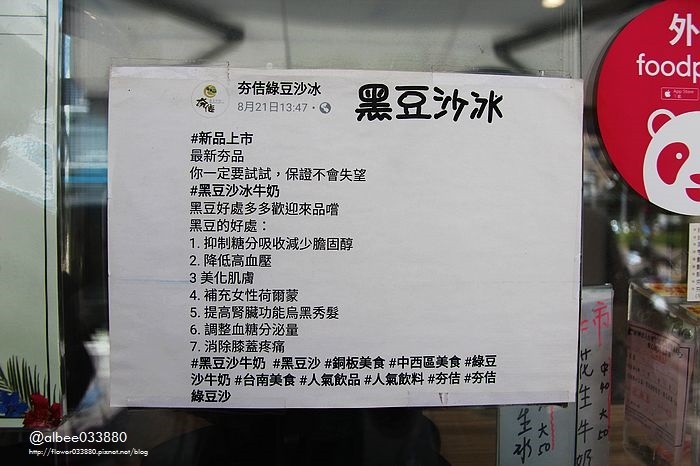 夯佶綠豆沙冰
8月21日13:47
黑豆沙冰
#新品上市
最新夯品
你一定要試試，保證不會失望
#黑豆沙冰牛奶
黑豆好處多多歡迎來品嚐
黑豆的好處：
1. 抑制糖分吸收減少膽固醇
2. 降低高血壓
3 美化肌膚
4. 補充女性荷爾蒙
5. 提高腎臟功能烏黑秀髮
6. 調整血糖分泌量
7. 消除膝蓋疼痛
#黑豆沙牛奶 #黑豆沙 #銅板美食 #中西區美食 #綠豆
沙牛奶 #台南美食 #人氣飲品 #人氣飲料 #夯佶 #夯佶
綠豆沙
外
foodp
App Store
花生牛奶
中40
大50
生冰
大50
@albee033880
http://flower033880.pixnet.net/blog